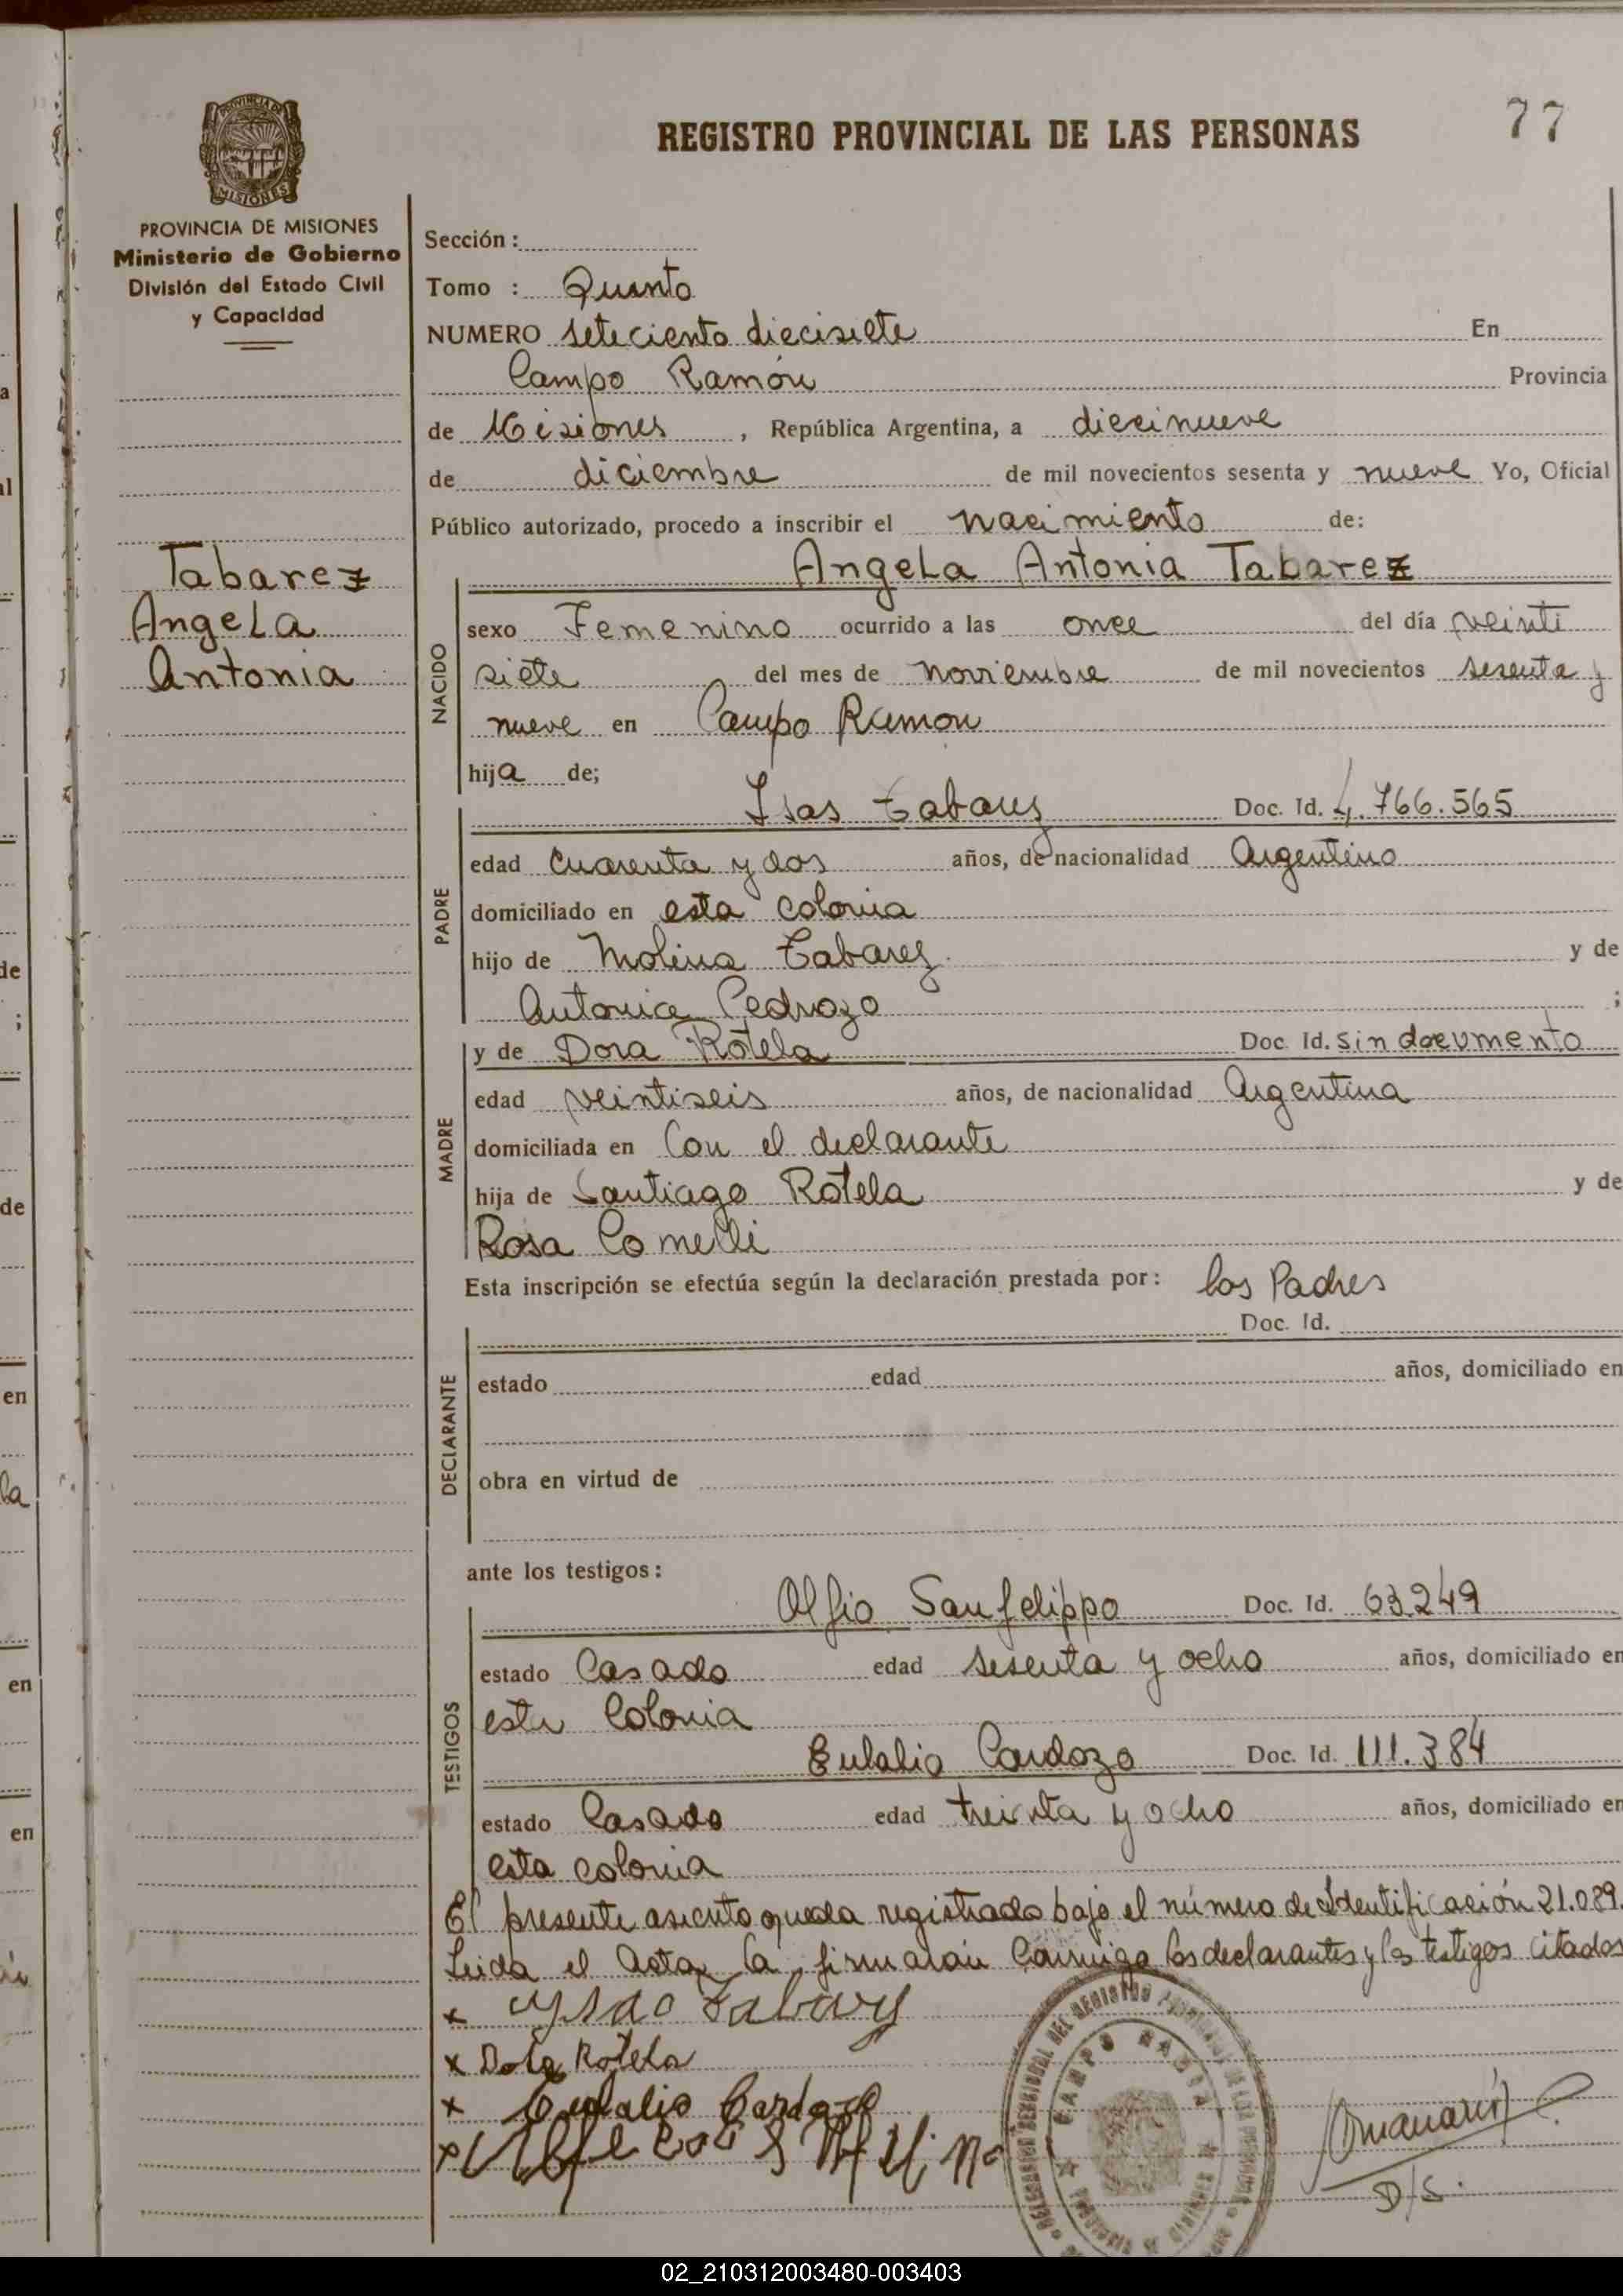 77
REGISTRO PROVINCIAL DE LAS PERSONAS
PROVINCIA DE MISIONES
Ministerio de Gobierno
División del Estado Civil
y Capacidad
Tabarez
Angela
Antonia
Sección :
Tomo : Quinto
NUMERO setecienta diecisiete En
Campo Ramón Provincia
de Misiones , República Argentina, a diecinueve
de diciembre de mil novecientos sesenta y nueve Yo, Oficial
Público autorizado, procedo a inscribir el nacimiento de:
Angela Antonia Tabarez
NACIDO
sexo Femenino ocurrido a las once del día veinti
siete del mes de noviembre de mil novecientos sesenta y
nueve en Campo Ramon
hija de;
PADRE
Isas Tabarez Doc. Id. 4.766.565
edad cuarenta y dos años, de nacionalidad Argentino
domiciliado en esta colonia
hijo de Molina Tabarez y de
Antonia Pedrozo ;
MADRE
y de Dora Rotela Doc. Id. sin documento
edad veintiseis años, de nacionalidad Argentina
domiciliada en Con el declarante
hija de Santiago Rotela y de
Rosa Comelli
Esta inscripción se efectúa según la declaración prestada por: los Padres
DECLARANTE
Doc. Id.
estado edad años, domiciliado en
obra en virtud de
ante los testigos:
TESTIGOS
Olfio Sanfelippo Doc. Id. 63.249
estado Casado edad sesenta y ocho años, domiciliado en
esta Colonia
Eulalio Cardozo Doc. Id. 111.384
estado Casado edad treinta y ocho años, domiciliado en
esta colonia
El presente asiento queda registrado bajo el número de Identificación 21.089.
Leida el Acta, la firmarán Conmigo los declarantes y los testigos citados
x Tabarez
x Dora Rotela
x Eulalio Cardozo
x
CAMPO RAMON
D/S.
02_210312003480-003403